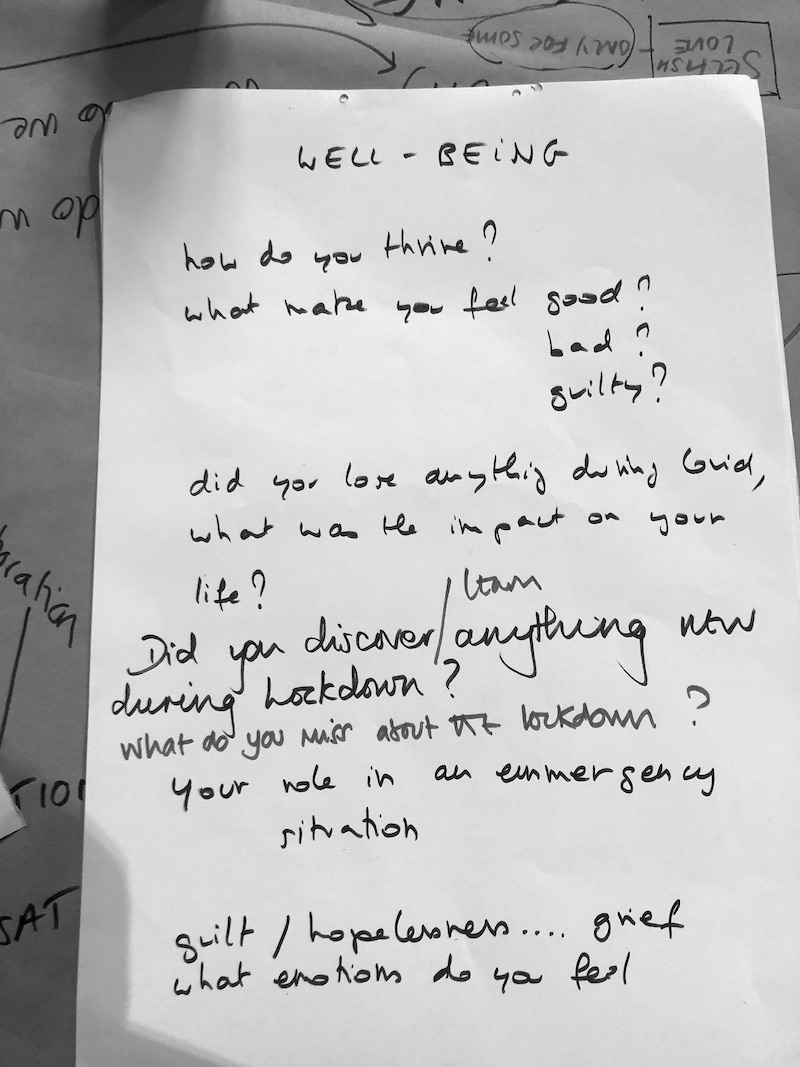 ONLY FOR SOME
SELFISH
LOVE
do we
do
WELL - BEING
how do you thrive?
what make you feel good?
bad?
guilty?
did you lose anythig during Covid,
what was the impact on your
life?
learn
Did you discover/anything new
during Lockdown?
What do you miss about the lockdown?
Your role in an emmergency
situation
guilt / hopelessness.... grief
what emotions do you feel
TION
SAT